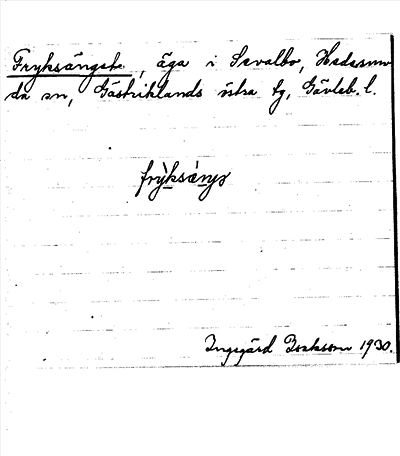 Fryksängste, äga i Sevalbo, Hedesun
da sn, Gästriklands östra tg, Gävleb. l.
frỳksǽnyə
Ingegärd Isaksson 1930.